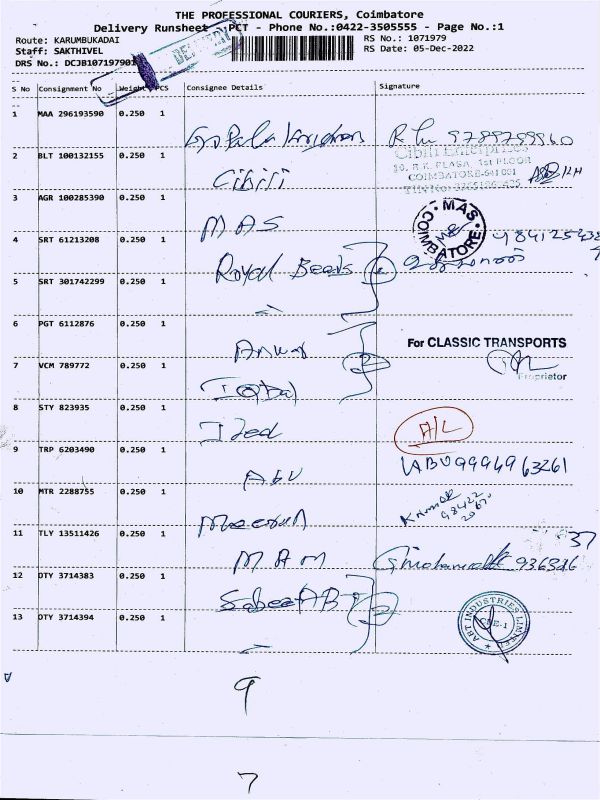 THE PROFESSIONAL COURIERS, Coimbatore
Delivery Runsheet - PCT - Phone No.:0422-3505555 - Page No.:1
Route: KARUMBUKADAI
RS No.: 1071979
Staff: SAKTHIVEL
RS Date: 05-Dec-2022
DRS No.: DCJB107197901
DELIVERY
S No Consignment No Weight PCS Consignee Details Signature
1 MAA 296193590 0.250 1
Gopala Krishnan 9789799960
2 BLT 100132155 0.250 1
Cibiri Cibiri Enterprises
1st FLOOR
COIMBATORE-641001
3 AGR 100285390 0.250 1
MAS MAS COIMBATORE
4 SRT 61213208 0.250 1
Royal Beards
5 SRT 301742299 0.250 1
6 PGT 6112876 0.250 1
Anwar For CLASSIC TRANSPORTS
7 VCM 789772 0.250 1
Proprietor
Iqbal
8 STY 823935 0.250 1
A/L
9 TRP 6203490 0.250 1
Abu ABU 9994963261
10 MTR 2288755 0.250 1
11 TLY 13511426 0.250 1
37
MAM 936386
12 OTY 3714383 0.250 1
ABT INDUSTRIES LIMITED
CBE-1
13 OTY 3714394 0.250 1
9
7